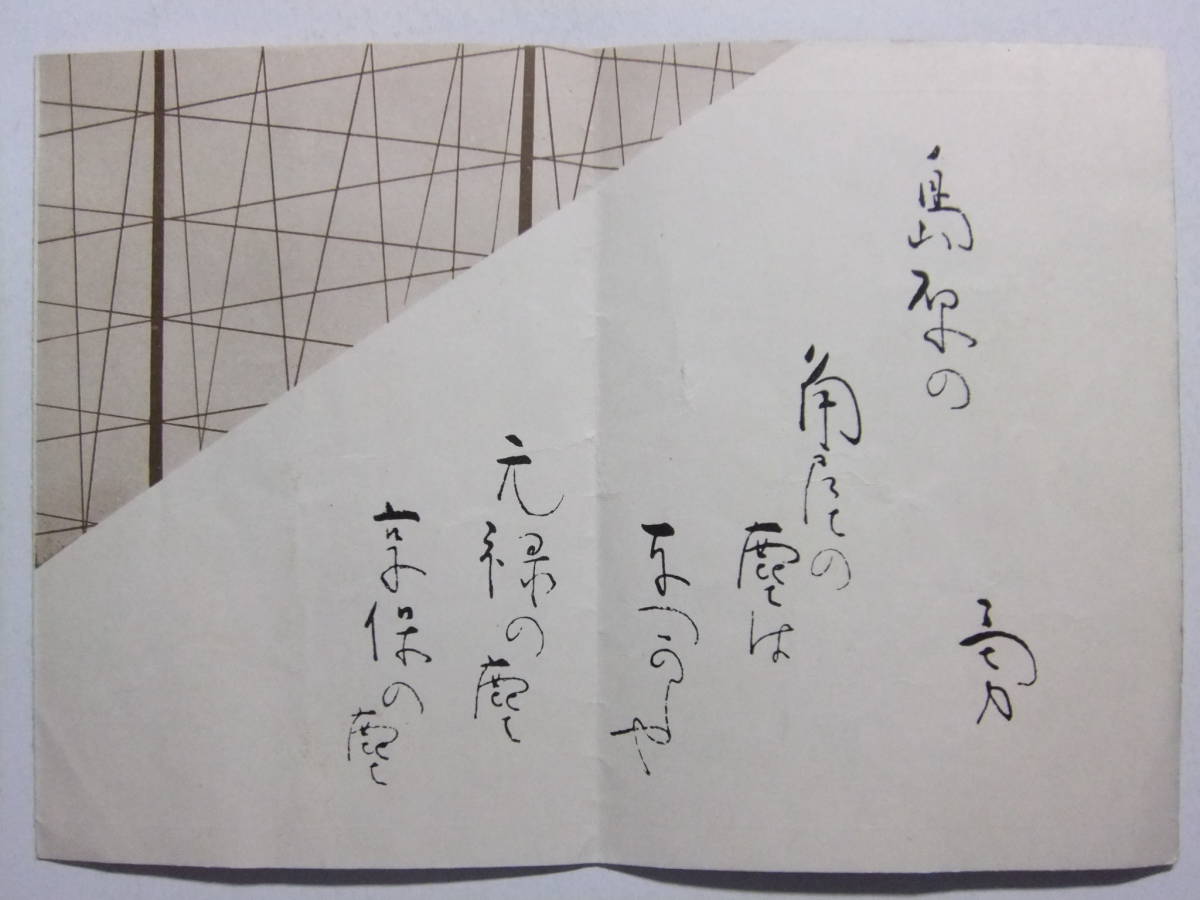 勇
島原の
角屋の
塵は
なつかしや
元禄の塵
享保の塵